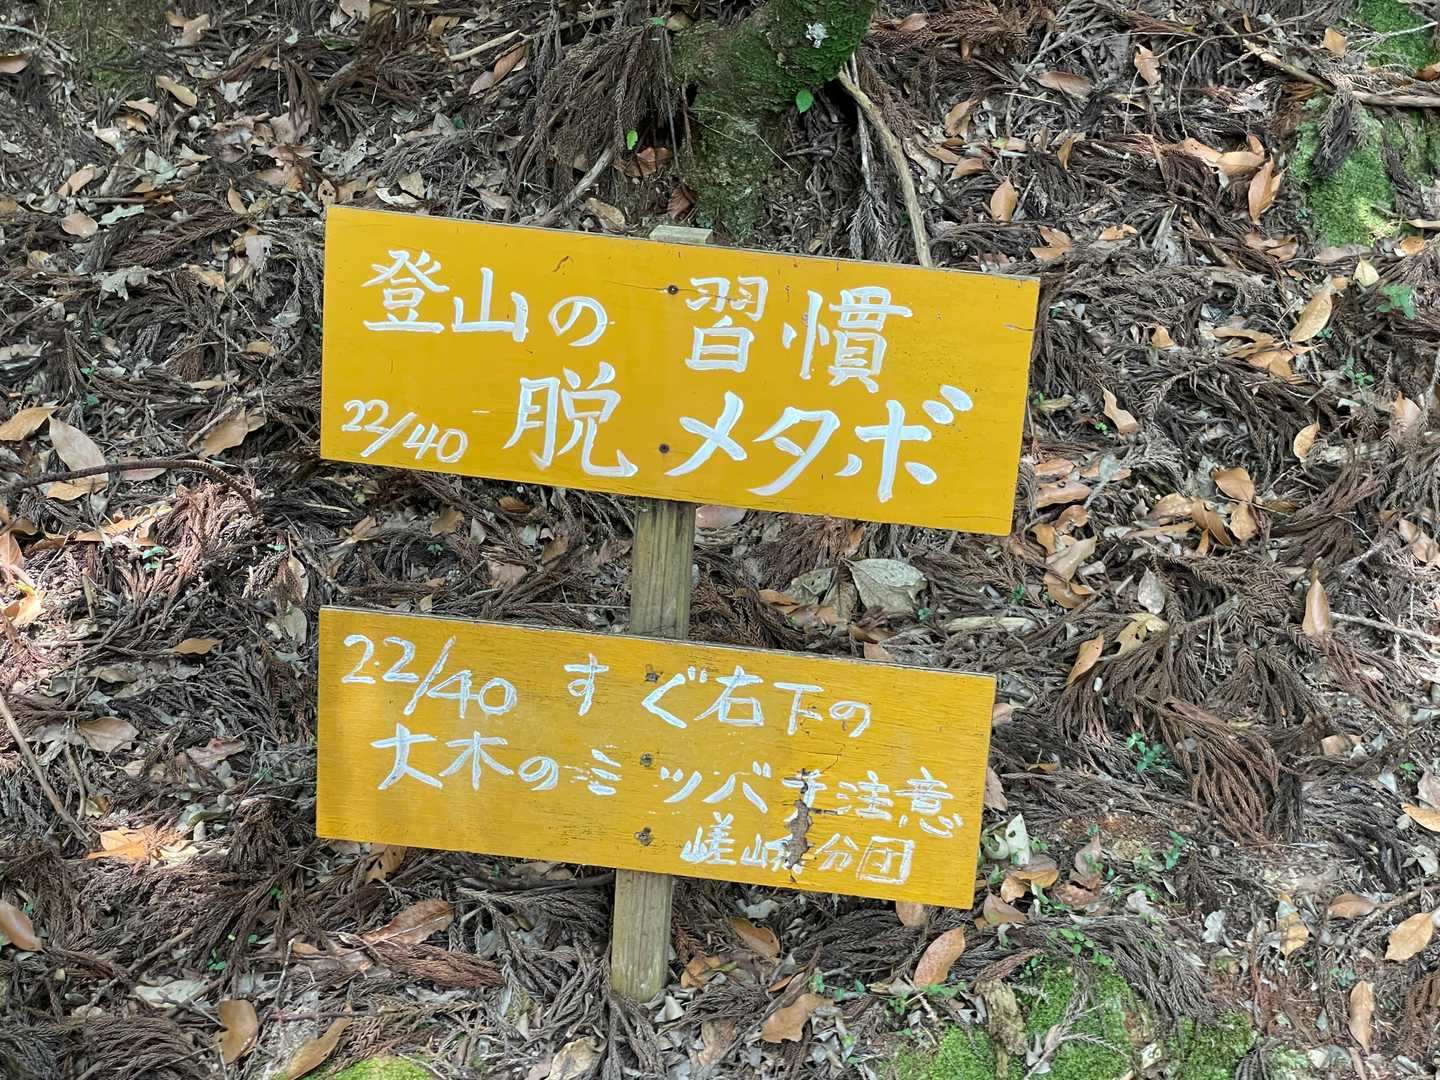 登山の 習慣
22/40 脱 メタボ
22/40 すぐ右下の
大木のミツバチ注意
嵯峨分団